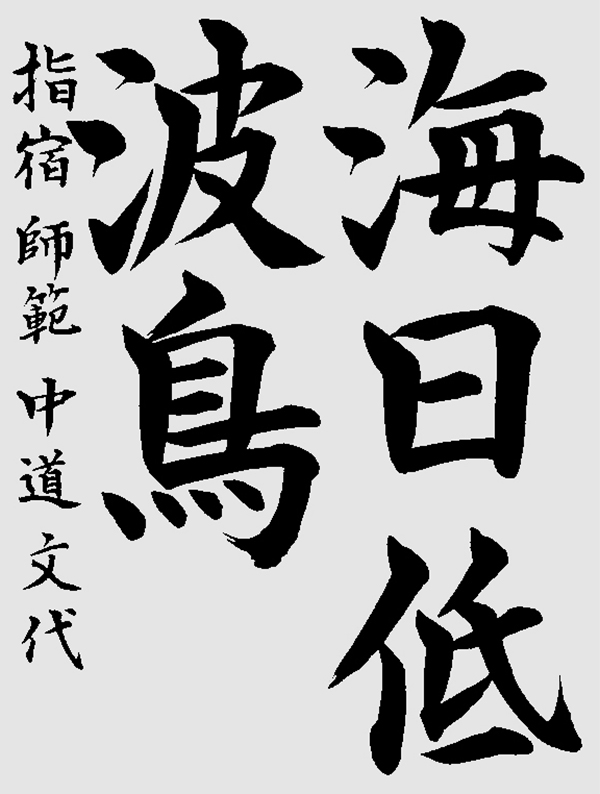 海日低
波鳥
指宿師範中道文代